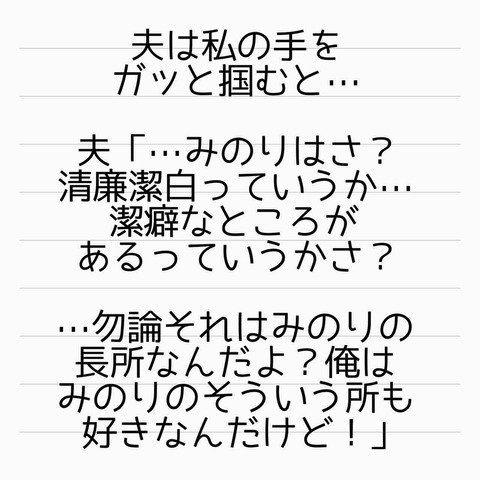 夫は私の手を
ガッと掴むと…
夫「…みのりはさ？
清廉潔白っていうか…
潔癖なところが
あるっていうかさ？
…勿論それはみのりの
長所なんだよ？俺は
みのりのそういう所も
好きなんだけど！」